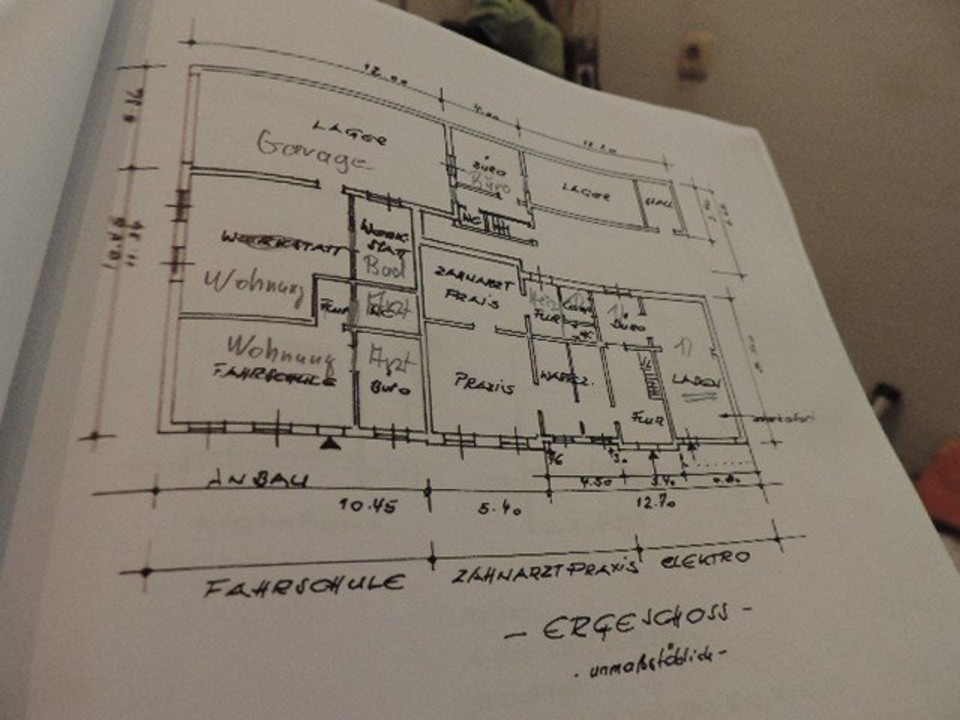 12.00
LAGER
Garage
BÜRO
Büro
LAGER
WC
WERKSTATT
WERK-
STATT
Bad
Wohnung
ZAHNARZT
PRAXIS
FLUR
BÜRO
FLUR
Arzt
Wohnung
FAHRSCHULE
Arzt
BÜRO
PRAXIS
LADEN
FLUR
ANBAU
10.45
5.40
4.50
3.40
12.70
FAHRSCHULE
ZAHNARZTPRAXIS
ELEKTRO
- ERGESCHOSS -
- unmaßstäblich -